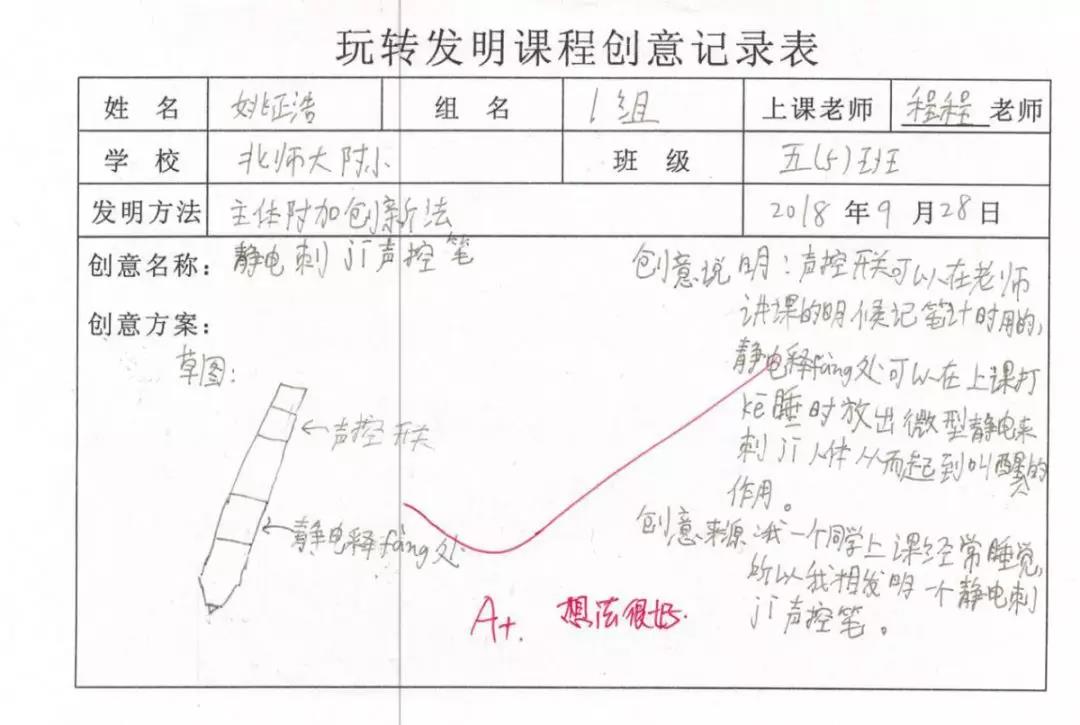 玩转发明课程创意记录表
姓 名 姚征浩 组 名 1组 上课老师 程程老师
学 校 北师大附小 班 级 五(5)班
发明方法 主体附加创新法 2018年9月28日
创意名称：静电刺jī声控笔
创意方案：
草图：
←声控开关
←静电释fàng处
创意说明：声控开关可以在老师
讲课的时候记笔计时用的，
静电释fàng处可以在上课打
kē睡时放出微型静电来
刺jī人体从而起到叫醒的
作用。
创意来源：我一个同学上课经常睡觉，
所以我想发明一个静电刺
jī声控笔。
A+. 想法很好.